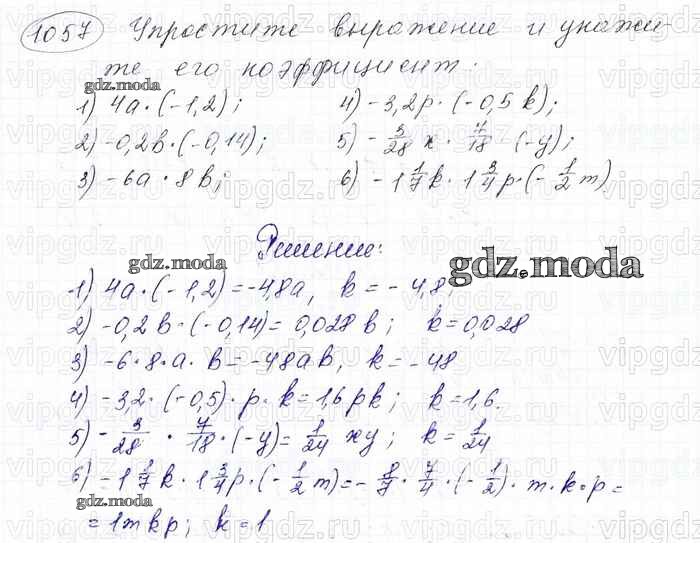 1057 Упростите выражение и укажи-
те его коэффициент:
gdz.moda
1) 4a·(-1,2); 4) -3,2p·(-0,5k);
2) -0,2b·(-0,14); 5) -3/28 x · 7/18 · (-y);
3) -6a · 8b; 6) -1 1/7 k · 1 3/4 p · (-1/2 m)
Решение:
gdz.moda
gdz.moda
1) 4a·(-1,2)=-4,8a, k=-4,8,
2) -0,2b·(-0,14)=0,028b; k=0,028
3) -6·8·a·b=-48ab, k=-48
4) -3,2·(-0,5)·p·k=1,6pk; k=1,6.
5) -3/28 · 7/18 · (-y)=1/24 xy; k=1/24
6) -1 1/7 k · 1 3/4 p · (-1/2 m)=-8/7 · 7/4 · (-1/2) · m·k·p=
gdz.moda
=1mkp; k=1
vipgdz.ru